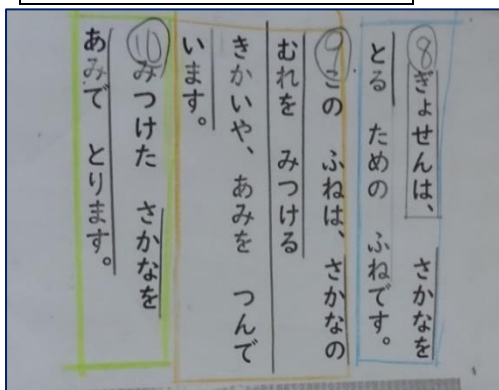 ⑧ぎょせんは、 さかなを
とる ための ふねです。
⑨この ふねは、さかなの
むれを みつける
きかいや、あみを つんで
います。
⑩みつけた さかなを
あみで とります。